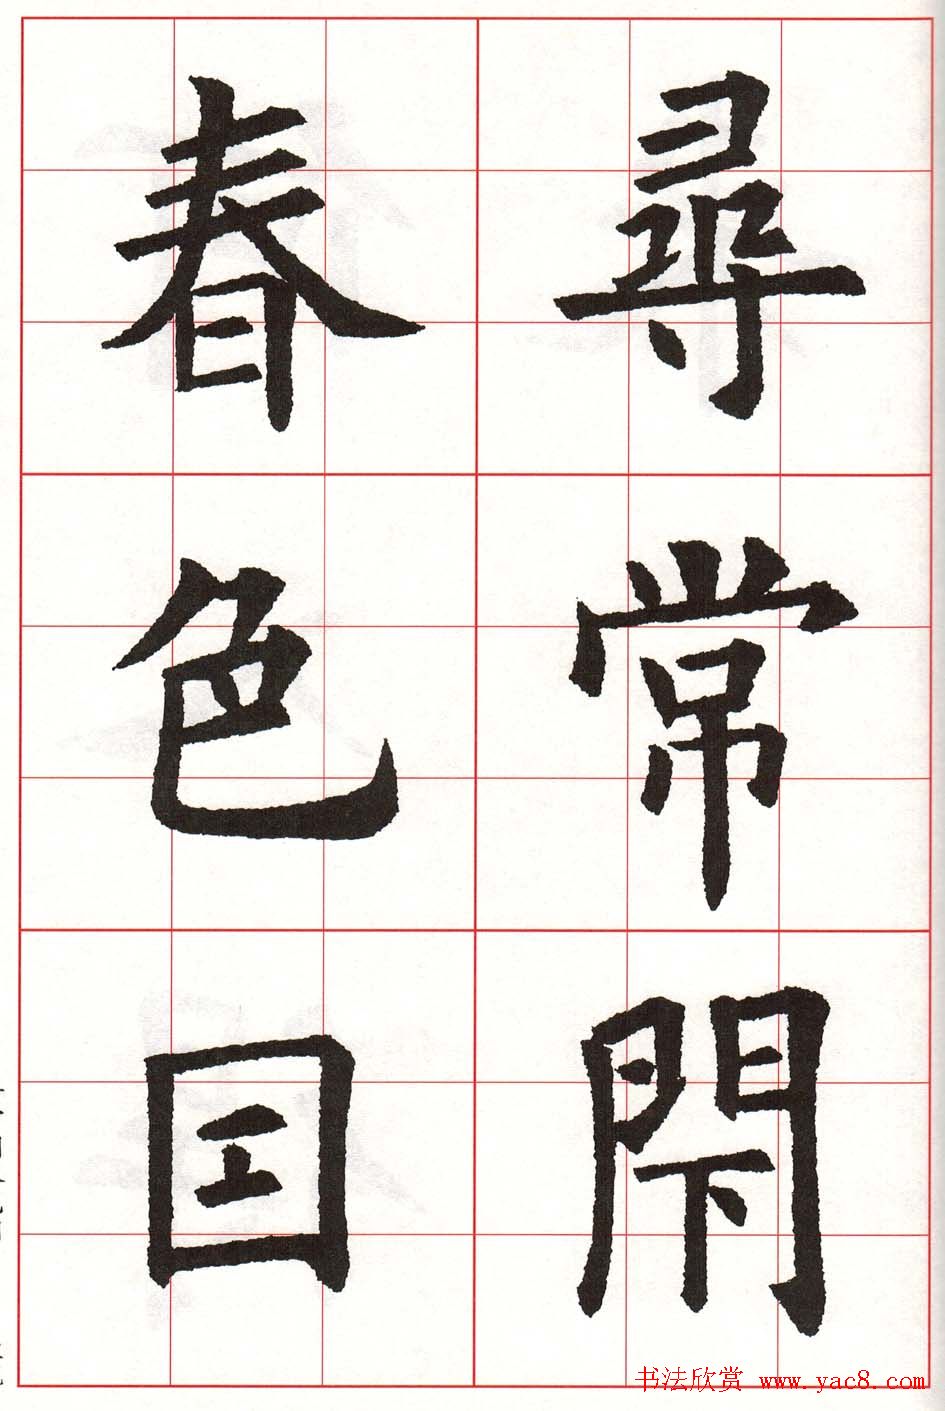 尋常閇
春色囙
书法欣赏 www.yac8.com